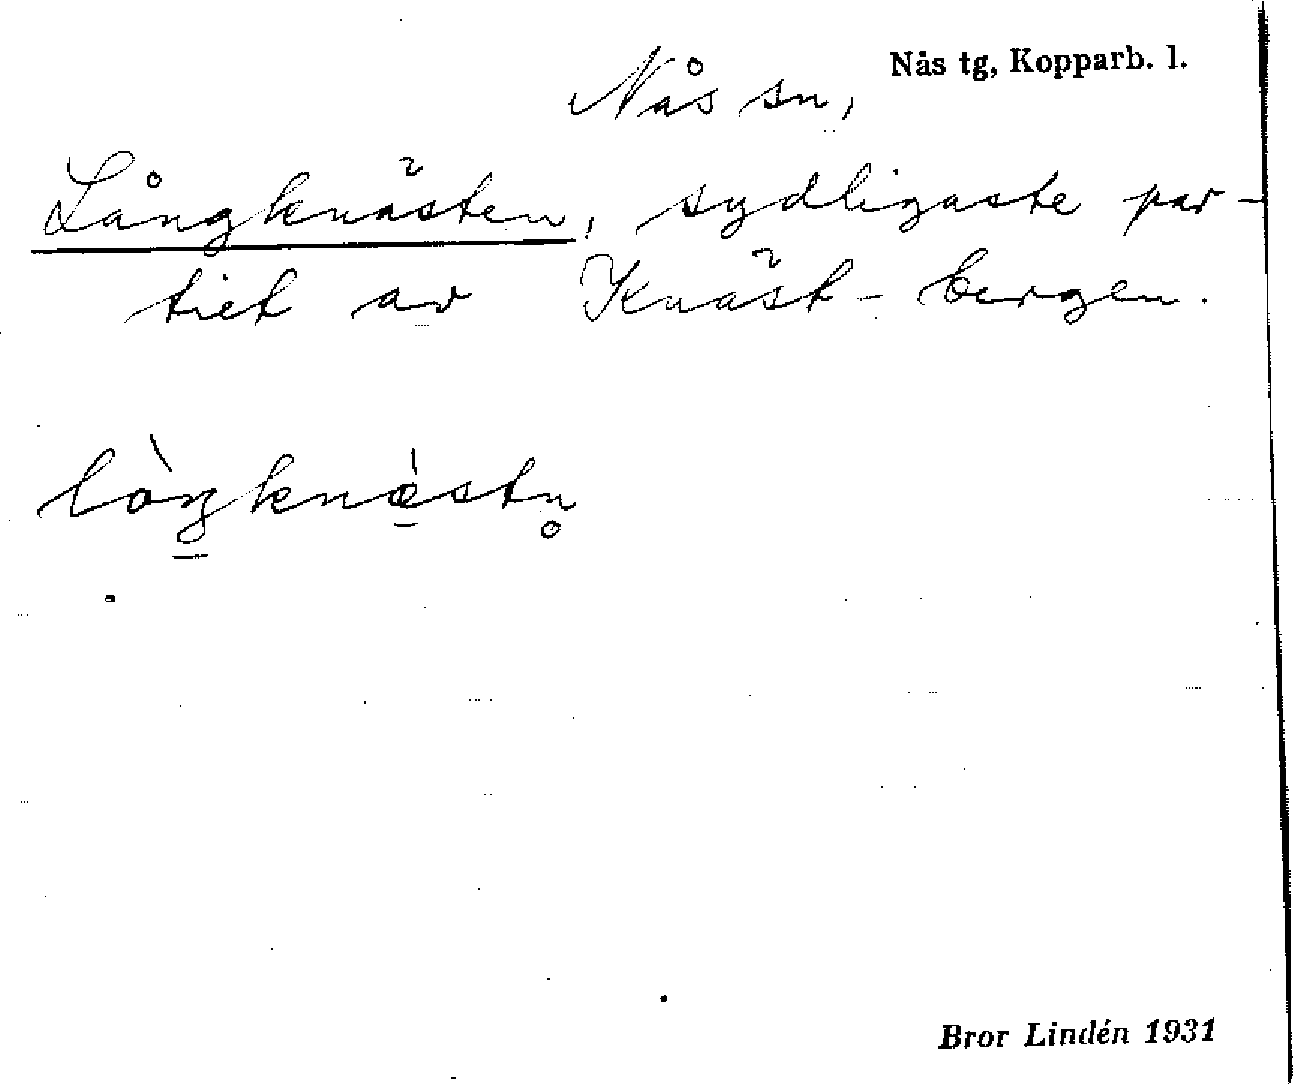 Nås tg, Kopparb. l.
Nås sn,
Långknästen, sydligaste par-
tiet av Knäst-bergen.
lòŋknæ̀stn̥
Bror Lindén 1931